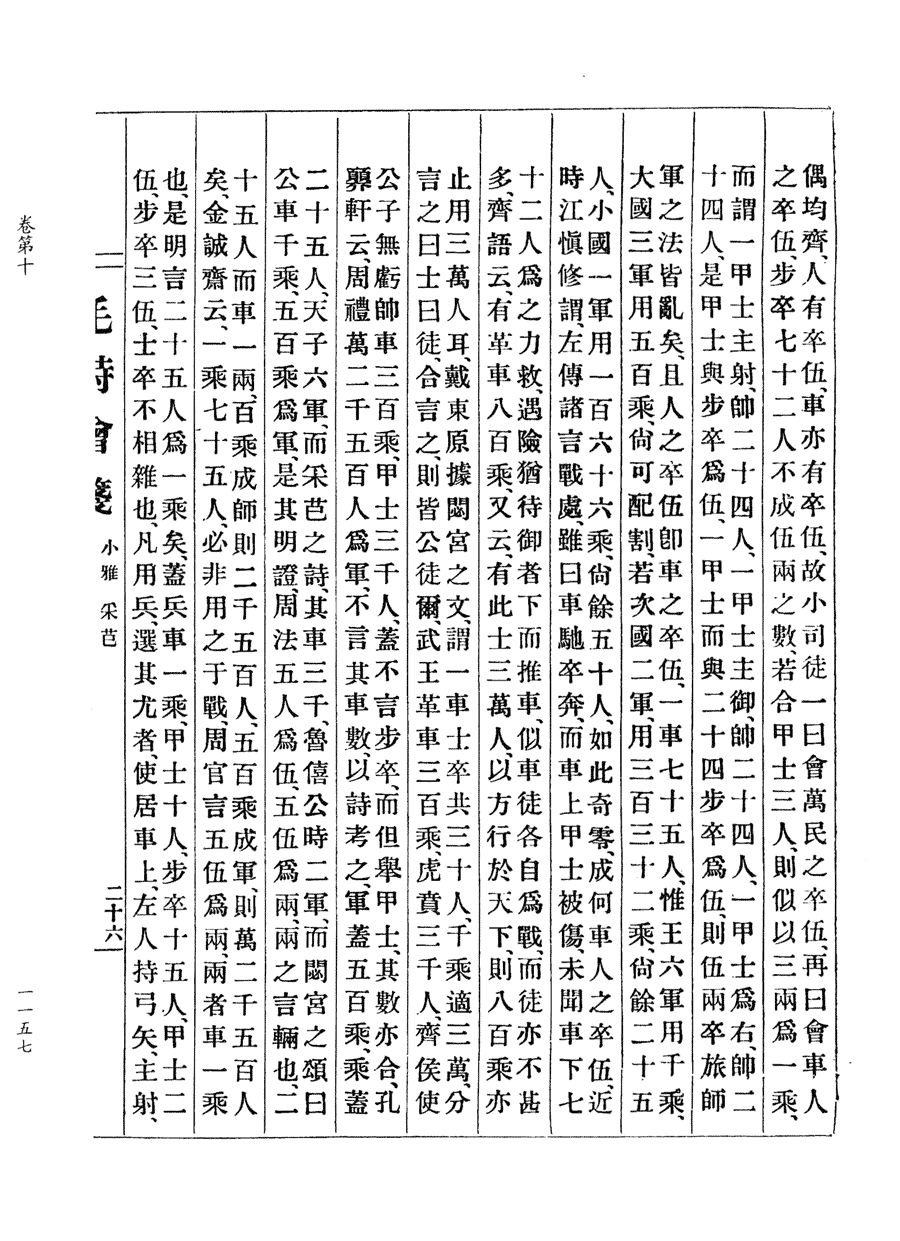 偶均齊、人有卒伍、車亦有卒伍、故小司徒一曰會萬民之卒伍、再曰會車人
之卒伍、步卒七十二人不成伍兩之數、若合甲士三人、則似以三兩爲一乘、
而謂一甲士主射、帥二十四人、一甲士主御、帥二十四人、一甲士爲右、帥二
十四人、是甲士與步卒爲伍、一甲士而與二十四步卒爲伍、則伍兩卒旅師
軍之法皆亂矣、且人之卒伍卽車之卒伍、一車七十五人、惟王六軍用千乘、
大國三軍用五百乘、尙可配割、若次國二軍、用三百三十二乘、尙餘二十五
人、小國一軍用一百六十六乘、尙餘五十人、如此奇零成何車人之卒伍、近
時江愼修謂、左傳諸言戰處、雖曰車馳卒奔、而車上甲士被傷、未聞車下七
十二人爲之力救、遇險猶待御者下而推車、似車徒各自爲戰、而徒亦不甚
多、齊語云、有革車八百乘、又云、有此士三萬人、以方行於天下、則八百乘亦
止用三萬人耳、戴東原據閟宮之文、謂一車士卒共三十人、千乘適三萬、分
言之曰士曰徒、合言之、則皆公徒爾、武王革車三百乘、虎賁三千人、齊侯使
公子無虧帥車三百乘、甲士三千人、蓋不言步卒、而但舉甲士、其數亦合、孔
顨軒云、周禮萬二千五百人爲軍、不言其車數、以詩考之、軍蓋五百乘、乘蓋
二十五人、天子六軍、而采芭之詩、其車三千、魯僖公時二軍、而閟宮之頌曰
公車千乘、五百乘爲軍、是其明證、周法五人爲伍、五伍爲兩、兩之言輛也、二
十五人而車一兩、百乘成師則二千五百人、五百乘成軍、則萬二千五百人
矣、金誠齋云、一乘七十五人、必非用之于戰、周官言五伍爲兩、兩者車一乘
也、是明言二十五人爲一乘矣、蓋兵車一乘、甲士十人、步卒十五人、甲士二
伍、步卒三伍、士卒不相雜也、凡用兵、選其尤者、使居車上、左人持弓矢、主射、
毛詩會箋 小雅 采芑
二十六
卷第十
一一五七